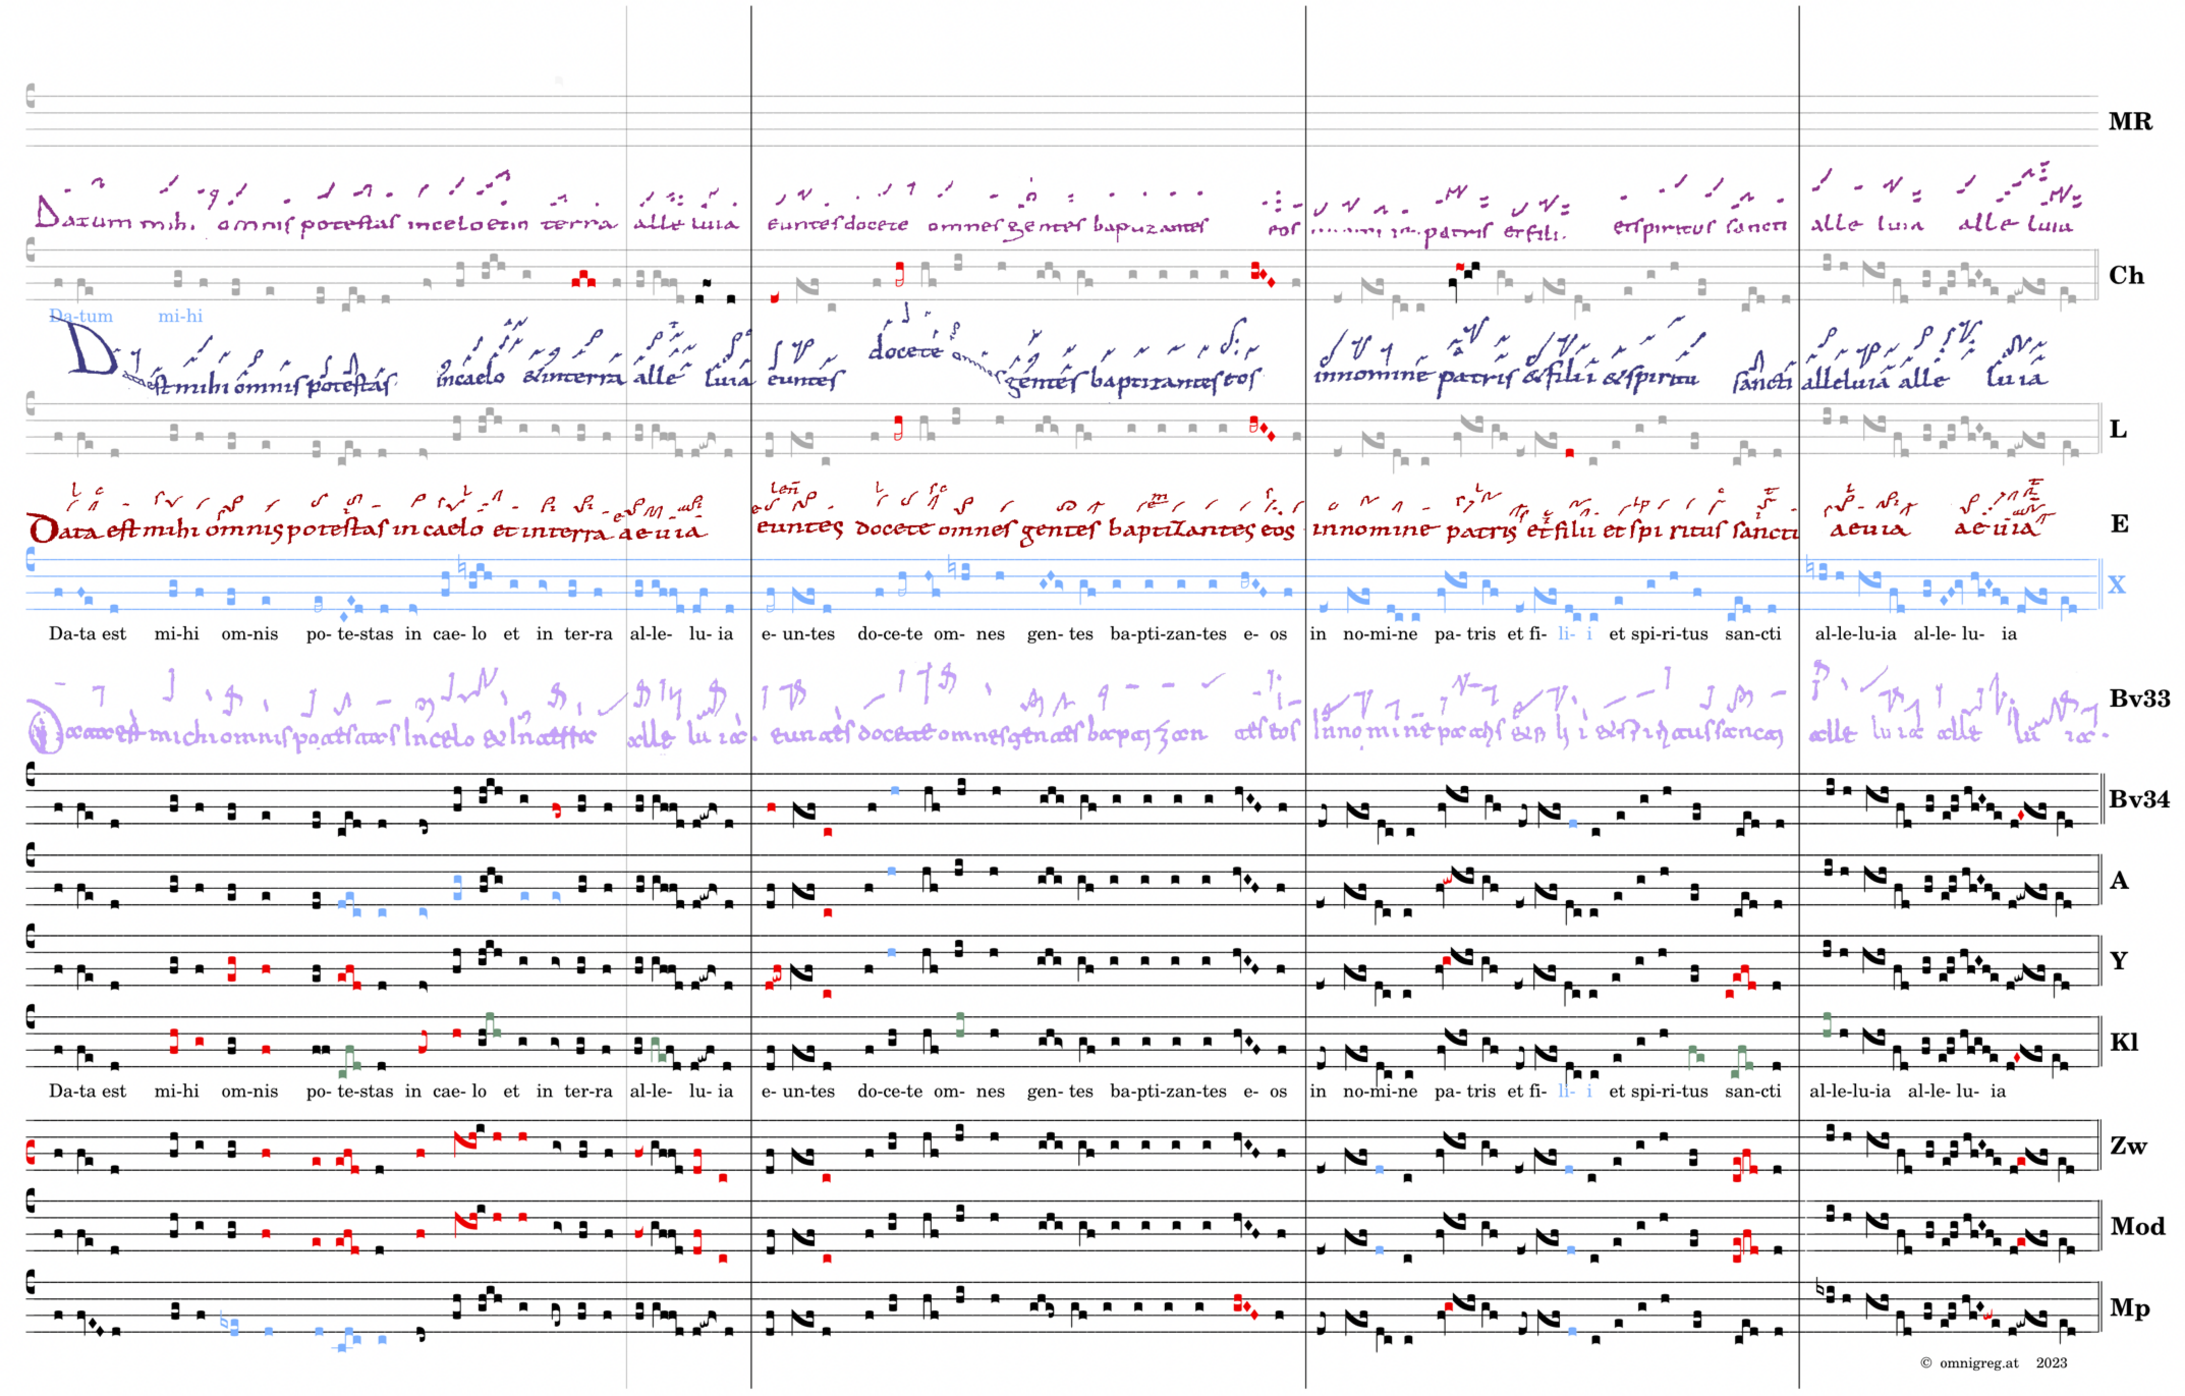 MR
Datum mihi omnis potestas in celo et in terra alle luia euntes docete omnes gentes baptizantes eos patris et fili. et spiritus sancti alle luia alle luia
Ch
Da-tum mi-hi
est mihi omnis potestas in caelo & in terra alle luia euntes docete omnes gentes baptizantes eos in nomine patris & filii & spiritu sancti alleluia alle luia
L
Data est mihi omnis potestas in caelo et in terra aeuia euntes docete omnes gentes baptizantes eos in nomine patris et filii et spiritus sancti aeuia aeuia
E
X
Da-ta est mi-hi om-nis po- te-stas in cae- lo et in ter-ra al-le- lu- ia e- un-tes do-ce-te om- nes gen- tes ba-pti-zan-tes e- os in no-mi-ne pa- tris et fi- li- i et spi-ri-tus san-cti al-le-lu-ia al-le- lu- ia
Bv33
michi omnis in celo alle luia euntes docete omnes eos in nomine alle luia alle luia.
Bv34
A
Y
Kl
Da-ta est mi-hi om-nis po- te-stas in cae- lo et in ter-ra al-le- lu- ia e- un-tes do-ce-te om- nes gen- tes ba-pti-zan-tes e- os in no-mi-ne pa- tris et fi- li- i et spi-ri-tus san-cti al-le-lu-ia al-le- lu- ia
Zw
Mod
Mp
© omnigreg.at 2023